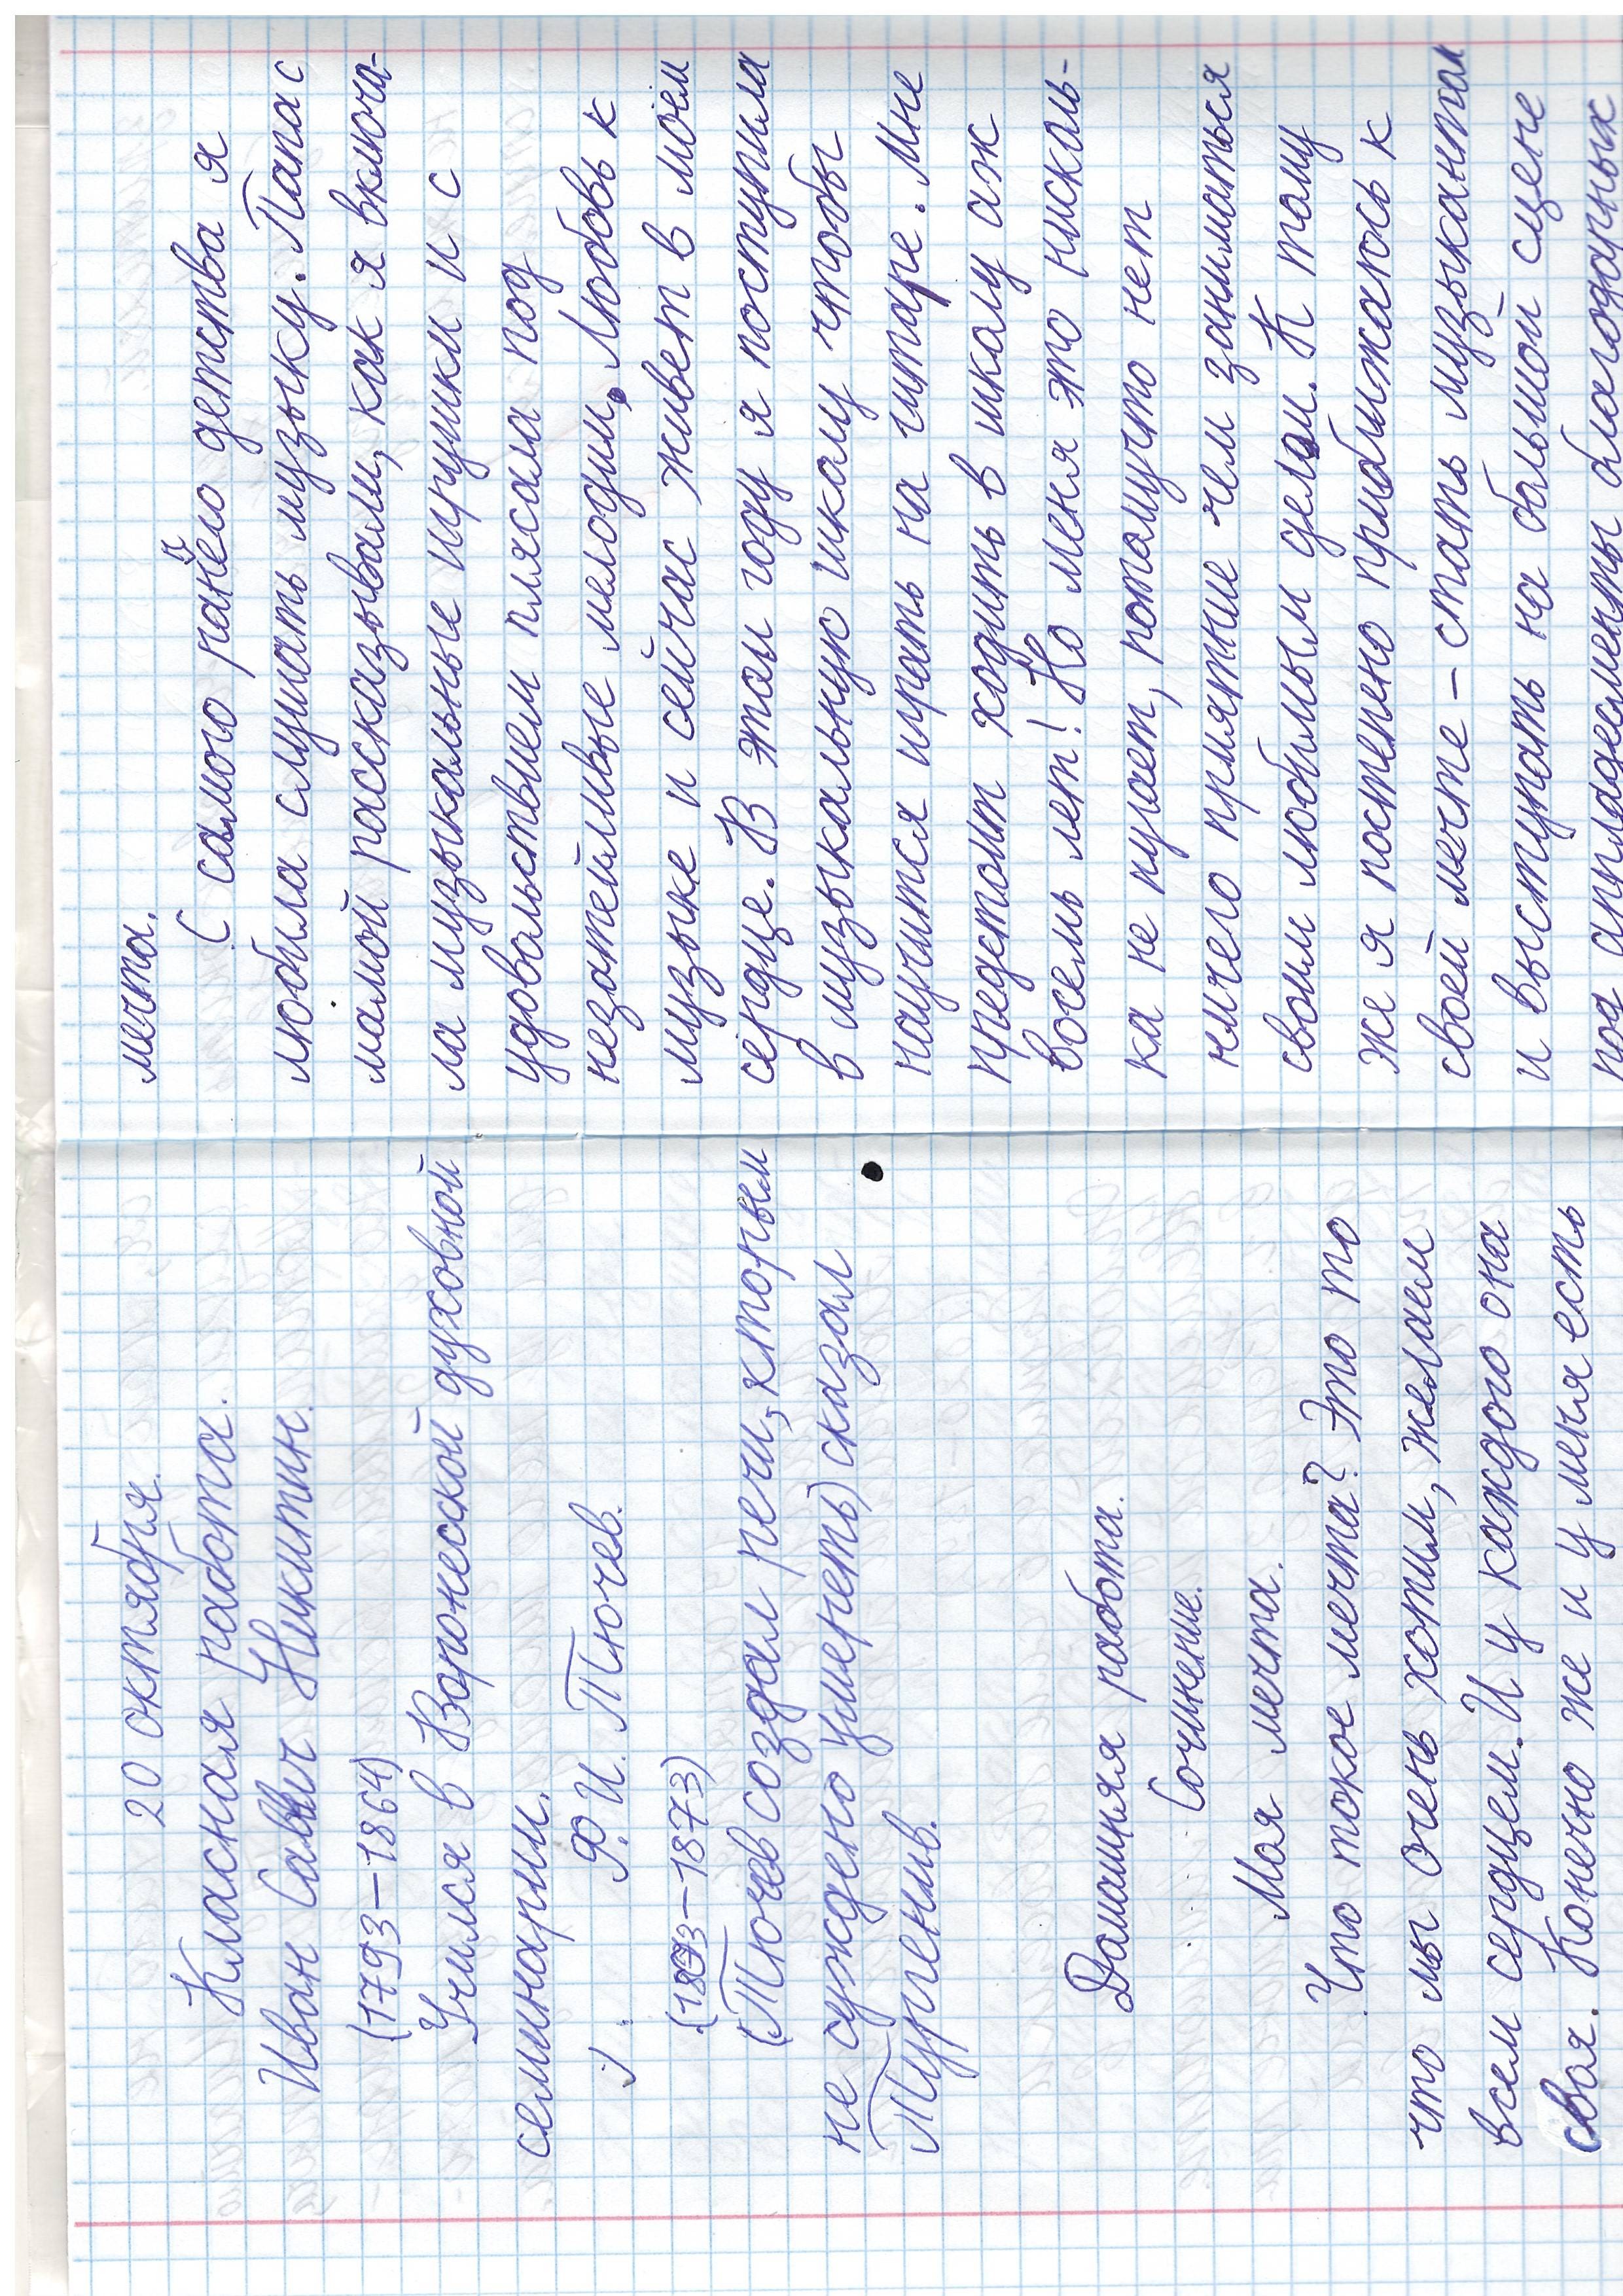 20 октября.
Класная работа.
Иван Саввич Никитин.
(1793–1864)
Учился в Воронеской духовной
семинарии.
Ф. И. Тючев.
(1893–1873)
(Тючев создал речи, кторым
не суждено умереть) сказал
Тургенив.
Домашняя работа.
Сочинение.
Моя мечта.
Что такое мечта? Это то
что мы очень хотим, желаем
всем сердцем. И у каждого она
своя. Конечно же и у меня есть
мечта.
С самого ранего детства я
н
любила слушать музыку. Папа с
мамой рассказывали, как я включа-
ла музыкальные игрушки и с
удовольствием плясала под
незатейливые мелодии. Любовь к
музыке и сейчас живет в моём
сердце. В этом году я поступила
в музыкальную школу чтобы
научится играть на гитаре. Мне
предстоит ходить в школу аж
восемь лет! Но меня это нисколь-
ка не пугает, потомучто нет
ничего приятние чем заниматься
своим любимым делом. К тому
же я постепено приближаюсь к
своей мечте – стать музыкантом
и выступать на большой сцене
под апплодесменты благодарных